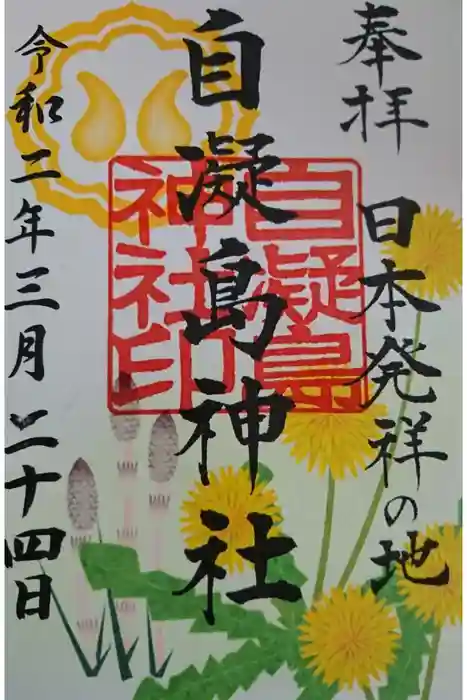 奉拝
日本発祥の地
自凝島神社
自凝島神社印
令和二年三月二十四日